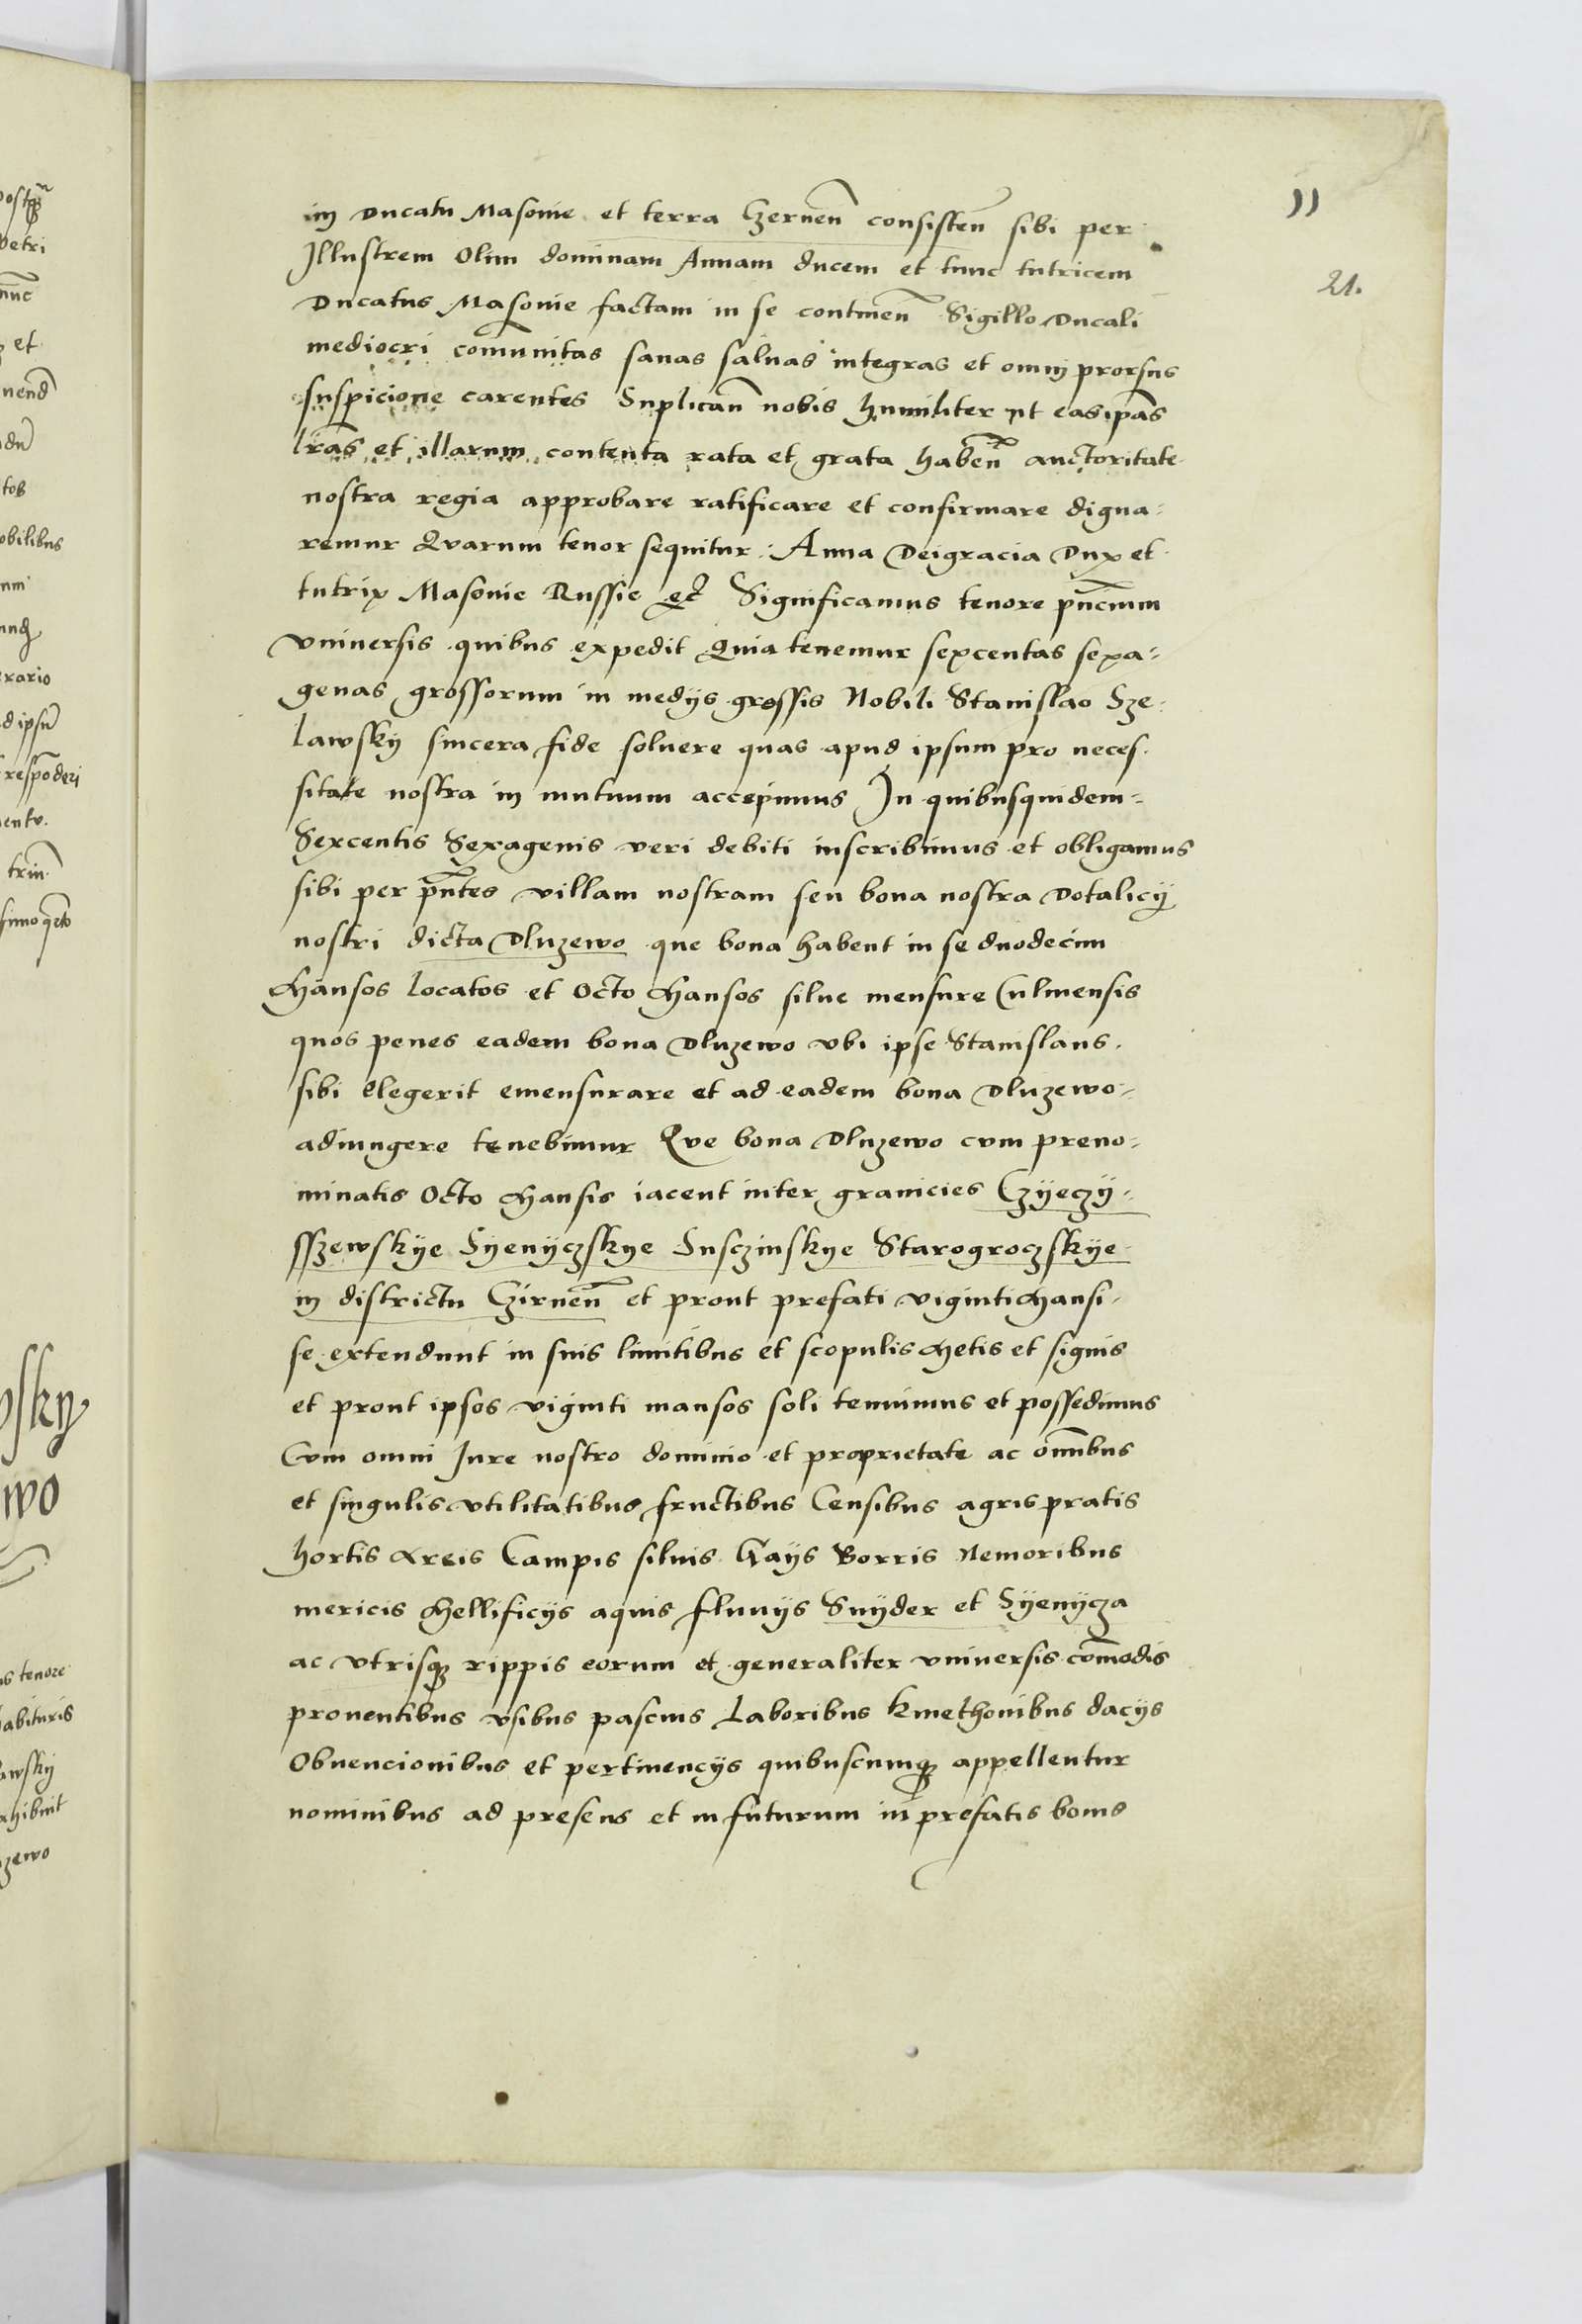 11
21.
in Ducatu Masovie et terra Czernen̄ consisten̄ sibi per
Illustrem Olim dominam Annam ducem et tunc tutricem
Ducatus Masovie factam in se continen̄ Sigillo Ducali
mediocri com̄unitas sanas saluas integras et omnj prorsus
suspicione carentes Suplican̄ nobis humiliter vt eas ip̄as
lr̄as et illarum contenta rata et grata haben̄ auctoritate
nostra regia approbare ratificare et confirmare digna-
remur Quarum tenor sequitur: Anna Dei gracia Dux et
tutrix Masovie Russie ec̄ Significamus tenore pn̄cium
vniuersis quibus expedit Quia tenemur sexcentas sexa-
genas grossorum in medijs grossis Nobili Stanislao Sze-
lawskÿ sincera fide soluere quas apud ipsum pro neces-
sitate nostra in mutuum accepimus In quibusquidem-
Sexcentis Sexagenis veri debiti inscribimus et obligamus
sibi per pn̄tes villam nostram seu bona nostra Dotalicÿ
nostri dicta Dluzewo que bona habent in se duodecim
Mansos locatos et Octo Mansos silue mensure Culmensis
quos penes eadem bona Dluzewo vbi ipse Stanislaus
sibi elegerit emensurare et ad eadem bona Dluzewo-
adiungere tenebimur Que bona Dluzewo cvm preno-
minatis Octo Mansis iacent inter granicies Czÿeczÿ-
sszewskÿe Syenÿczskye Susczinskye Starogroczskÿe
in districtu Czirnen̄ et prout prefati viginti Mansi
se extendunt in suis limitibus et scopulis Metis et signis
et prout ipsos viginti mansos soli tenuimus et possedimus
Cvm omni Jure nostro dominio et proprietate ac om̄ibus
et singulis vtilitatibus fructibus Censibus agris pratis
hortis Areis Campis siluis Gaÿs Borris Nemoribus
mericis Mellificÿs aquis fluuÿs Swÿder et Syenÿcza
ac vtrisq3 rippis eorum et generaliter vniuersis com̄odis
prouentibus vsibus pascuis Laboribus kmethonibus dacÿs
Obuencionibus et pertinencÿs quibuscumq3 appellentur
nominibus ad presens et in futurum in prefatis bonis